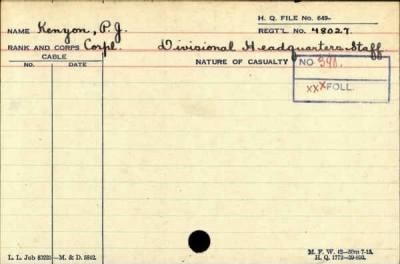 H. Q. FILE No. 649-
NAME Kenyon, P. J. REGT'L. No. 48027.
RANK AND CORPS Corpl. Divisional Headquarters Staff
CABLE
No. DATE NATURE OF CASUALTY
NO 341.
xxx FOLL.
L. L. Job —M. & D. M. F. W. 42—50m 7-15.
H. Q. 1772-39-893.